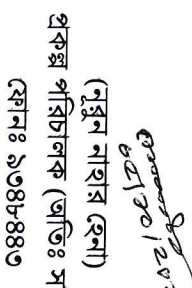 (নুরুন নাহার হেনা)
প্রকল্প পরিচালক (অতিঃ স
ফোনঃ ৯৩৪৮৪৪৩